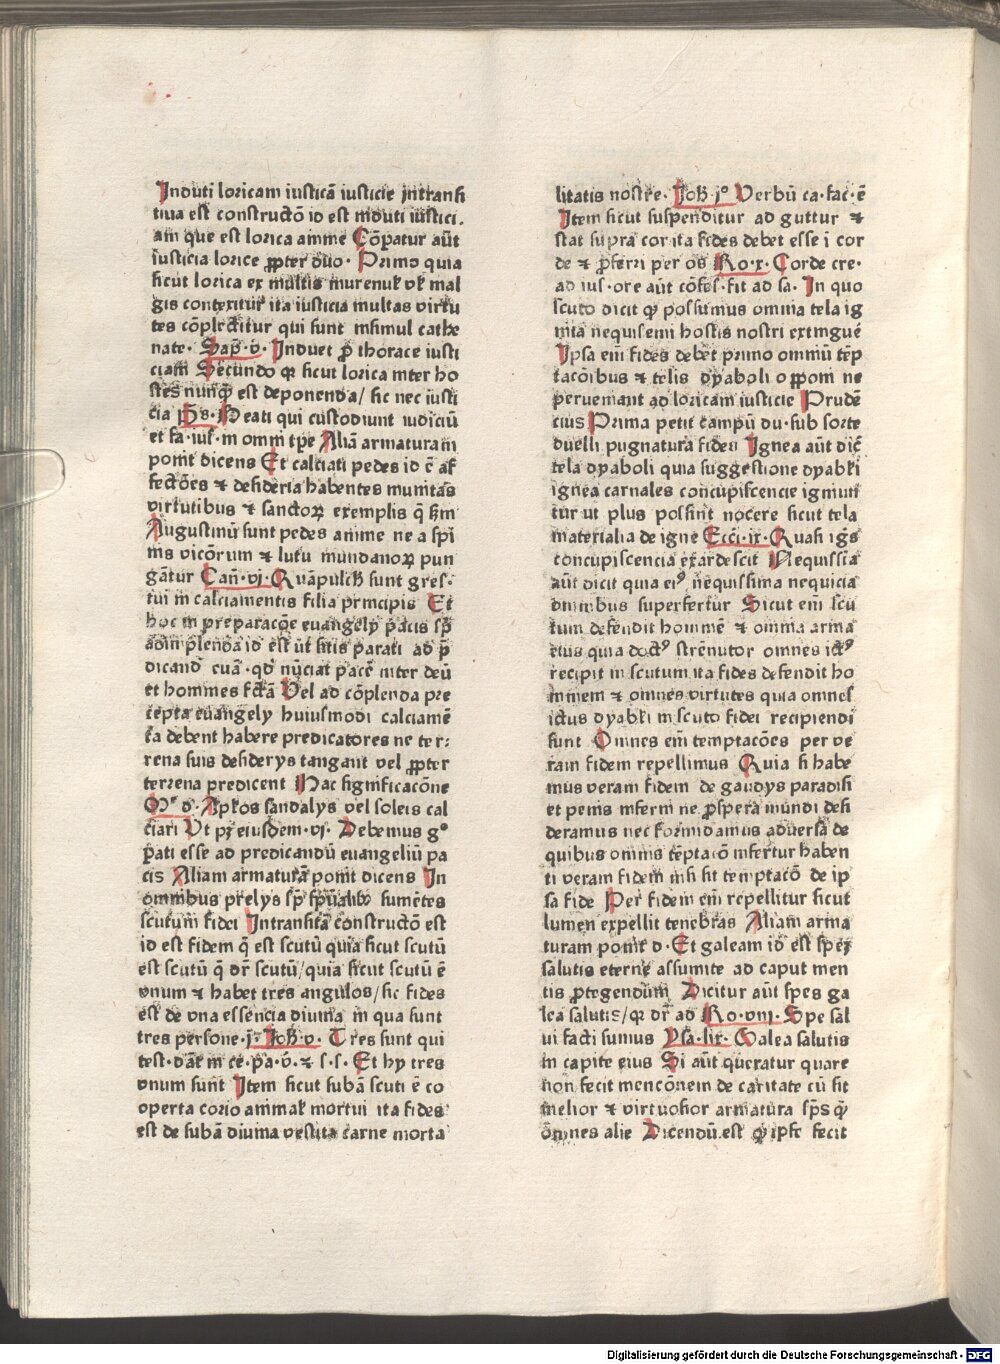 Induti loricam iusticā iusticie intransi
tiua est constructō id est induti iustici.
am que est lorica anime Cōpatur aūt
iusticia lorice ꝓpter duo. Primo quia
sicut lorica ex multis murenul vl mal
gis contexitur ita iusticia multas virtu
tes cōplectitur qui sunt insimul cathe
nate. Sap̄. v. Induet p̄ thorace iusti
ciam Secundo qꝛ sicut lorica inter ho
stes nunq̄ est deponenda/ sic nec iusti
cia p̄s. Beati qui custodiunt iudiciū
et fa. iusť. in omni tp̄e Aliā armaturam
ponit dicens Et calciati pedes id ē af
fectōes ⁊ desideria habentes munitas
virtutibus ⁊ sanctoꝝ exemplis q̄ ẜm
Augustinū sunt pedes anime ne a spi
nis vicōrum ⁊ lutu mundanoꝝ pun
gātur Can̄. vj. Quāpulcħ sunt gres.
tui in calciamentis filia principis Et
hoc in preparacōe euangely pacis sp̄
adimplenda id est ūt sitis parati ad p̄
dicand̄ euā. qd̄ nūciat pacē inter deū
et hommes fc̄tā Vel ad cōplenda pre
cepta euangely huiusmodi calciamē
ta debent habere predicatores ne ter:
rena suis desiderys tangant vel ꝓpter
terrena predicent Hac significacōne
Mͬ. d. Apl̄os sandalys vel soleis cal
ciari Vt pꝫ eiusdem. vj. Debemus gͦ
p̄ati esse ad predicandū euangeliū pa
cis Aliam armaturā ponit dicens In
omnibus prelys sp̄ sp̄ualib⁹ sumētes
scutum fidei Intransitā constructō est
id est fidem q̄ est scutū quia sicut scutū
est scutū q̄ dr̄ scutū/quia sicut scutū ē
vnum ⁊ habet tres angulos/sic fides
est de vna essēncia diuina in qua sunt
tres persone. j. Joħ. v. Tres sunt qui
test. dāt in ce. pa. v̄. ⁊ s. s. Et hy tres
vnum sunt Item sicut subā scuti ē co
operta corio animal mortui ita fides
est de subā diuina vestita carne morta
litatis nostre. Joħ. jͦ Verbū ca. fac. ē
Item sicut suspenditur ad guttur ⁊
stat supra cor ita fides debet esse ī cor
de ⁊ p̄ferri per os Ro. x. Corde cre.
ad ius. ore aūt cōfes. fit ad sa. In quo
scuto dicit qꝫ possumus omnia tela ig
nita nequisemi hostis nostri extinguē
Ipsa em̄ fides debet primo omniū tēp
tacōibus ⁊ telis dyaboli opponi ne
perueniant ad loricam iusticie Prudē
cius Prima petit campū du. sub sorte
duelli pugnatura fides Ignea aūt dic̄
tela dyaboli quia suggestione dyabl̄i
ignea carnales concupiscencie igniun
tur ut plus possint nocere sicut tela
materialia de igne Ecci. ix. Quasi igs
concupiscencia exardescit Nequissīa
aūt dicit quia ei⁹ nequissima nequicia
omnibus superfertur Sicut em̄ scu
tum defendit hommē ⁊ omnia arma
eius quia doct⁹ strēnutor omnes ict⁹
recipit in scutum ita fides defendit ho
minem ⁊ omnes virtutes quia omnes
ictus dyabl̄i in scuto fidei recipiendi
sunt Omnes em̄ temptacōes per ve
ram fidem repellimus Quia si habe
mus veram fidem de gaudys paradisi
et penis inferni ne p̄spera mundi desi
deramus nec formidamus aduersa de
quibus omnis tēptacō infertur haben
ti veram fidem nisi sit temptacō de ip
sa fide Per fidem em̄ repellitur sicut
lumen expellit tenebras Aliam arma
turam ponit d. Et galeam id est spez
salutis eterne assumite ad caput men
tis p̄tegendum Dicitur aūt spes ga
lea salutis/qꝛ dr̄ ad Ro. viij. Spe sal
ui facti sumus Ysa. lix. Galea salutis
in capite eius Si aūt queratur quare
non fecit mencōnem de caritate cū sit
melior ⁊ virtuosior armatura sp̄s q̄
omnes alie Dicendū est qꝫ ipse fecit
Digitalisierung gefördert durch die Deutsche Forschungsgemeinschaft - DFG